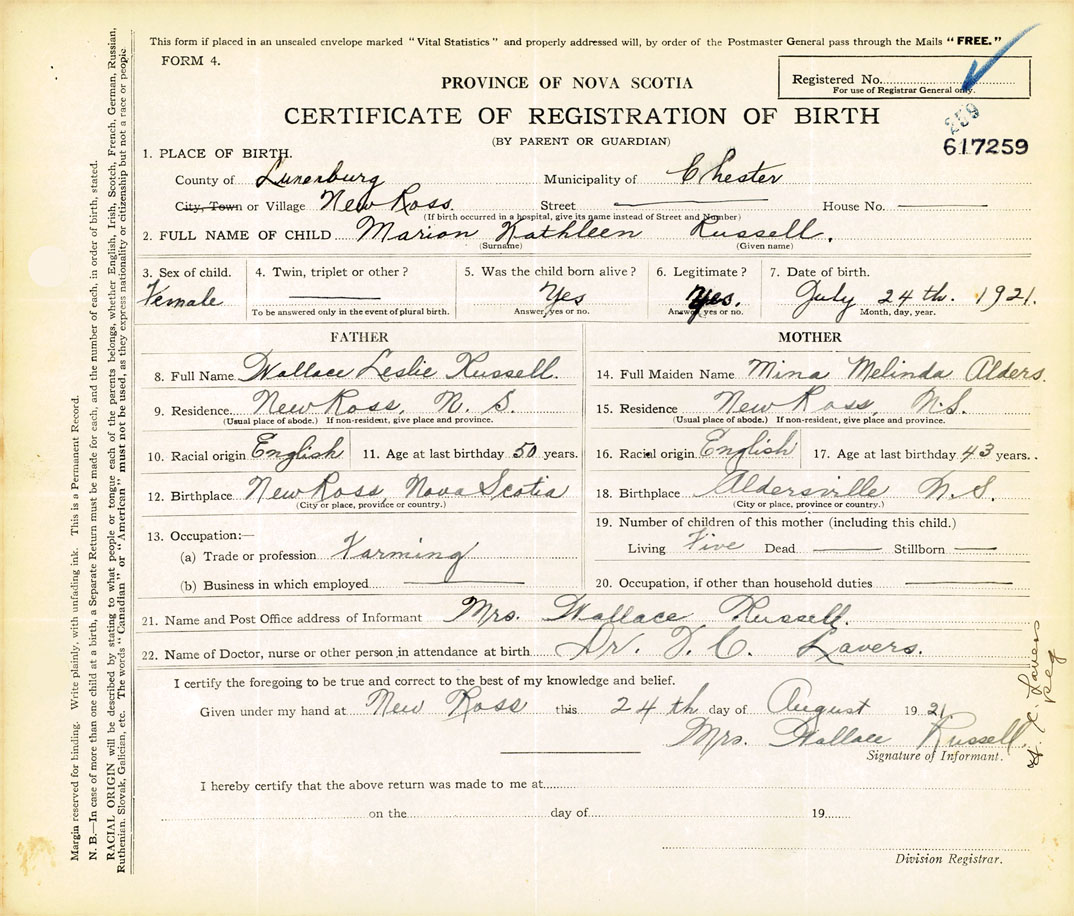 This form if placed in an unsealed envelope marked "Vital Statistics" and properly addressed will, by order of the Postmaster General pass through the Mails "FREE."
FORM 4.
PROVINCE OF NOVA SCOTIA
Registered No.
For use of Registrar General only.
CERTIFICATE OF REGISTRATION OF BIRTH
259
(BY PARENT OR GUARDIAN)
617259
1. PLACE OF BIRTH.
County of Lunenburg Municipality of Chester
City, Town or Village New Ross Street House No.
(If birth occurred in a hospital, give its name instead of Street and Number)
2. FULL NAME OF CHILD Marion Kathleen Russell.
(Surname) (Given name)
3. Sex of child. 4. Twin, triplet or other? 5. Was the child born alive? 6. Legitimate? 7. Date of birth.
Female Yes Yes. July 24th. 1921.
To be answered only in the event of plural birth. Answer yes or no. Answer yes or no. Month, day, year.
FATHER MOTHER
8. Full Name Wallace Leslie Russell. 14. Full Maiden Name Mina Melinda Alders.
9. Residence New Ross, N. S. 15. Residence New Ross, N.S.
(Usual place of abode.) If non-resident, give place and province. (Usual place of abode.) If non-resident, give place and province.
10. Racial origin English 11. Age at last birthday 50 years. 16. Racial origin English 17. Age at last birthday 43 years.
12. Birthplace New Ross, Nova Scotia 18. Birthplace Aldersville N.S.
(City or place, province or country.) (City or place, province or country.)
13. Occupation:— 19. Number of children of this mother (including this child.)
(a) Trade or profession Farming Living Five Dead Stillborn
(b) Business in which employed 20. Occupation, if other than household duties
21. Name and Post Office address of Informant Mrs. Wallace Russell.
22. Name of Doctor, nurse or other person in attendance at birth Dr. F. C. Lavers.
I certify the foregoing to be true and correct to the best of my knowledge and belief.
Given under my hand at New Ross this 24th day of August 1921
Mrs. Wallace Russell
Signature of Informant.
I hereby certify that the above return was made to me at
on the day of 19
Division Registrar.
Margin reserved for binding. Write plainly, with unfading ink. This is a Permanent Record.
N. B.—In case of more than one child at a birth, a Separate Return must be made for each, and the number of each, in order of birth, stated.
RACIAL ORIGIN will be described by stating to what people or tongue each of the parents belongs, whether English, Irish, Scotch, French, German, Russian,
Ruthenian, Slovak, Galician, etc. The words "Canadian" or "American" must not be used, as they express nationality or citizenship but not a race or people
Lavers
Reg